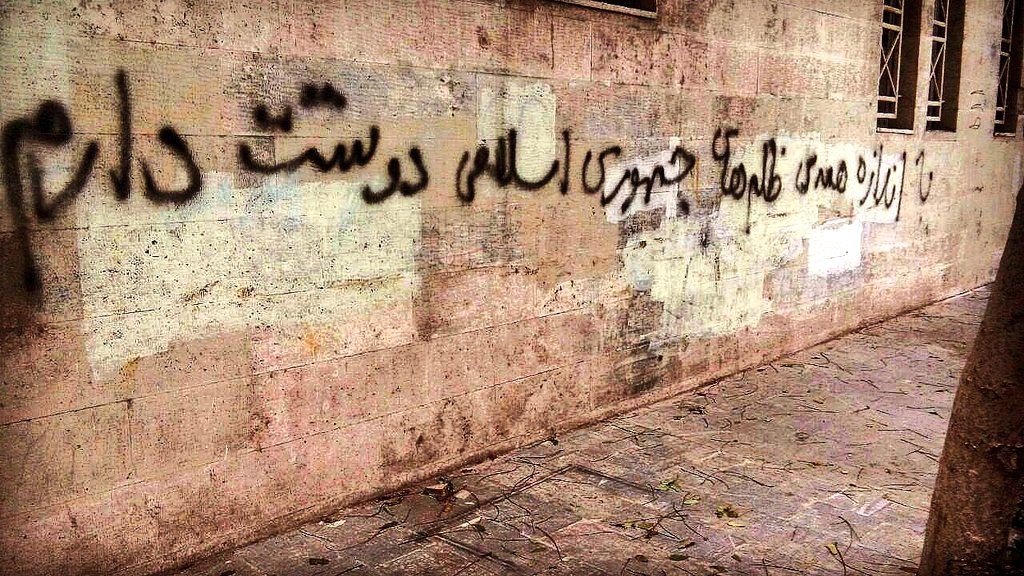 اندازه همه ی ظلم های جمهوری اسلامی دوست دارم